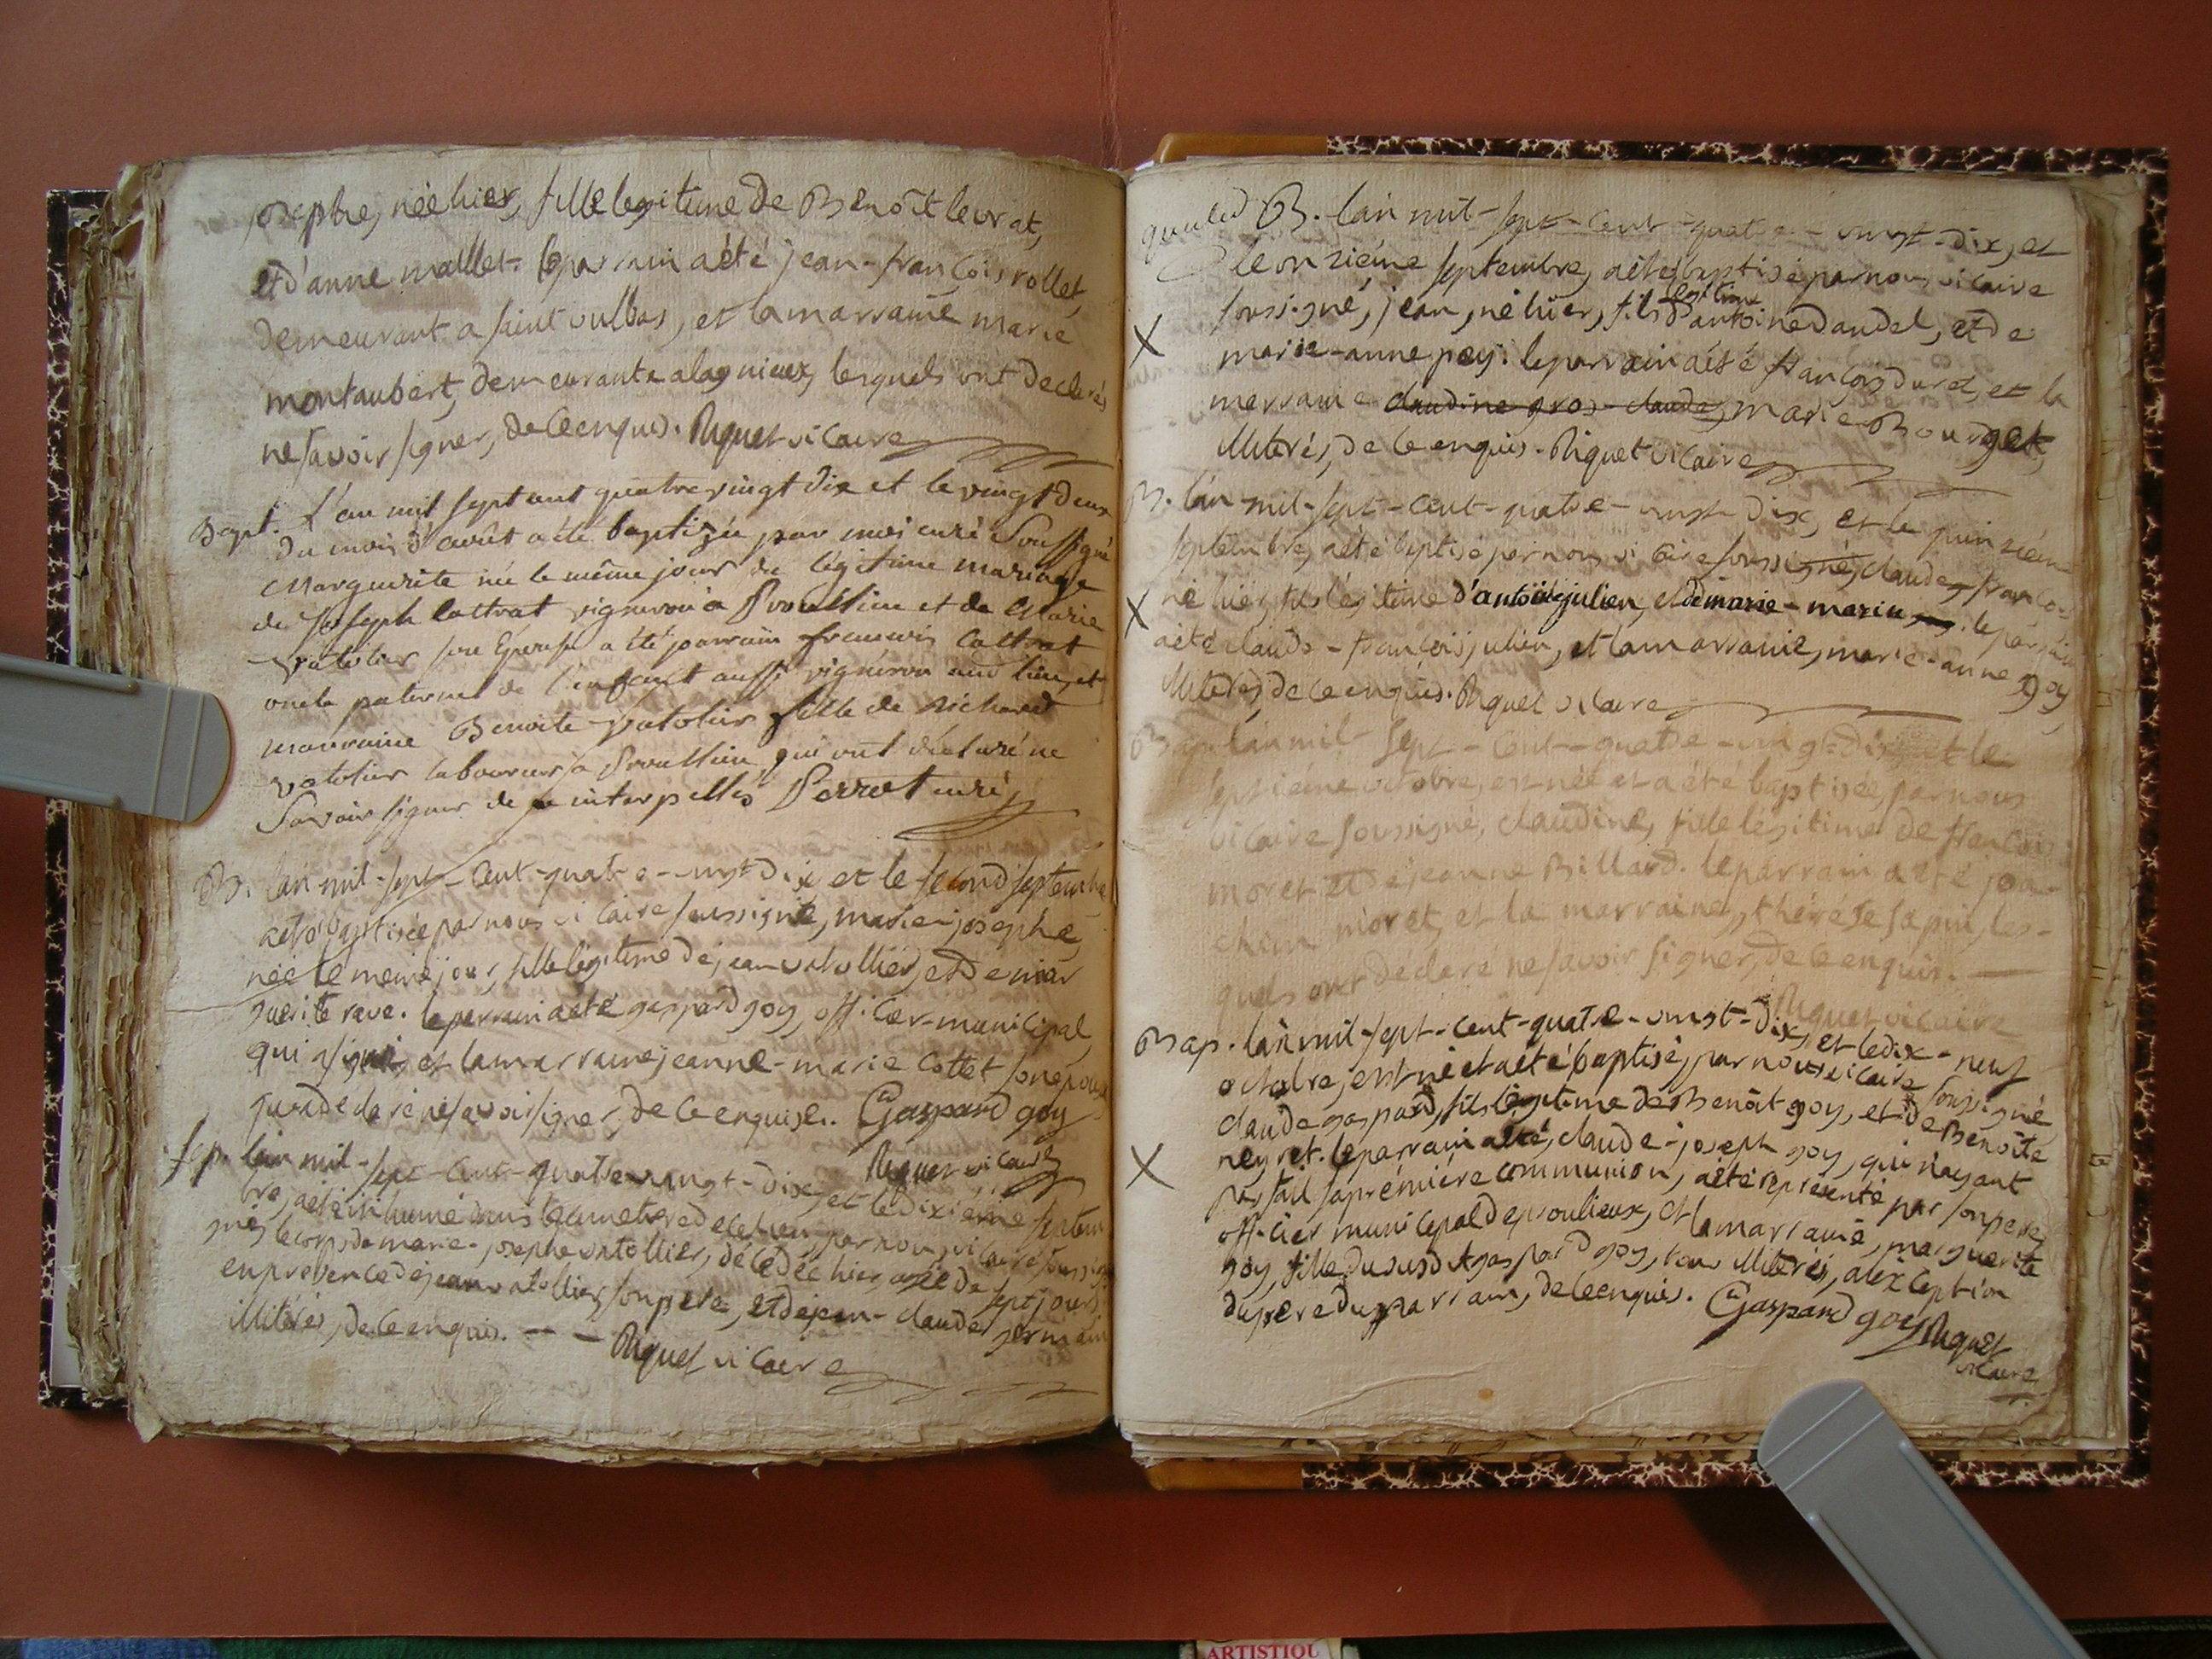 josephe, née hier, fille legitime de Benoît levrat,
et d'anne mallet. le parrain a été jean-françois rollet,
demeurant a saint vulbas, et la marraine marie
montaubert, demeurante a lagnieux, lesquels ont declarés
ne savoir signer, de ce enquis. Riquet vicaire
Bapt. L'an mil sept cent quatre vingt dix et le vingt deux
du mois d'août a été baptizée par moi curé Soussigné
Marguerite née le même jour du légitime mariage
de Joseph Cattrat vigneron a Proullieu et de Marie
vatolier son Epouse a été parrain francois Cattrat
oncle paternel de l'enfant aussi vigneron aud lieu, et
marraine Benoite vatolier fille de Richard
vatolier laboureur a Proullieu qui ont déclaré ne
Savoir signer de ce interpellés Perret curé
B. l'an mil-sept-cent-quatre-vingt dix et le second septembre
a été baptisée par nous vicaire soussigné, marie-josephe,
née le meme jour, fille legitime de jean vatollier, et de mar
guerite rave. le parrain a été gaspard goy, officier-municipal
qui a signé, et la marraine jeanne-marie Cottet son épouse
qui a declaré ne savoir signer, de ce enquise. Gaspard goy
Riquet vicaire
sep. l'an mil-sept-cent-quatre vingt-dix, et le dixieme septem
bre, a été inhumé dans le cimetiere de ce lieu par nous vicaire soussi
gné, le corps de marie-josephe vatollier, décédée hier agée de sept jours
en presence de jean vatollier son pere, et de jean-claude germain
illitérés, de ce enquis. - - Riquet vicaire
B. l'an mil-sept-cent-quatre-vingt-dix, et
le onzième septembre, a été baptisé par nous vicaire
soussigné, jean, né hier, fils légitime d'antoine dandel, et de
marie-anne pey. le parrain a été françois duret, et la
marraine claudine gros-claude, marie Bourget,
illiterés, de ce enquis. Riquet vicaire
B. l'an mil-sept-cent-quatre-vingt dix, et le quinzièm
septembre, a été baptisé par nous vicaire soussigné, claude-franço
né hier, fils légitime d'antoine julien, et de marie-marin. le parrain
a été claude-françois julien, et la marraine, marie-anne goy
illiterés, de ce enquis. Riquet vicaire
Bap. l'an mil sept-cent-quatre-vingt-dix et le
septième octobre, est née et a été baptisée, par nous
vicaire soussigné, claudine, fille legitime de françois
moret et de jeanne Billard. le parrain a été joa-
chim moret, et la marraine, thérése sapin, les-
quels ont déclaré ne savoir signer, de ce enquis.
Riquet vicaire
Bap. l'an mil-sept-cent-quatre-vingt-dix, et le dix-neuf
octobre, est né et a été baptisé, par nous vicaire soussigné
claude gaspard, fils légitime de Benoît goy, et de Benoîte
neyret. le parrain a été, claude-joseph goy, qui n'ayant
pas fait sa prémiére communion, a été représenté par son pere,
officier municipal de proulieux, et la marraine, marguerite
goy, fille du susdit gaspard goy, tous illiterés, a l'éxception
du pere du parrain, de ce enquis. Gaspard goy Riquet
vicaire
ARTISTIQU